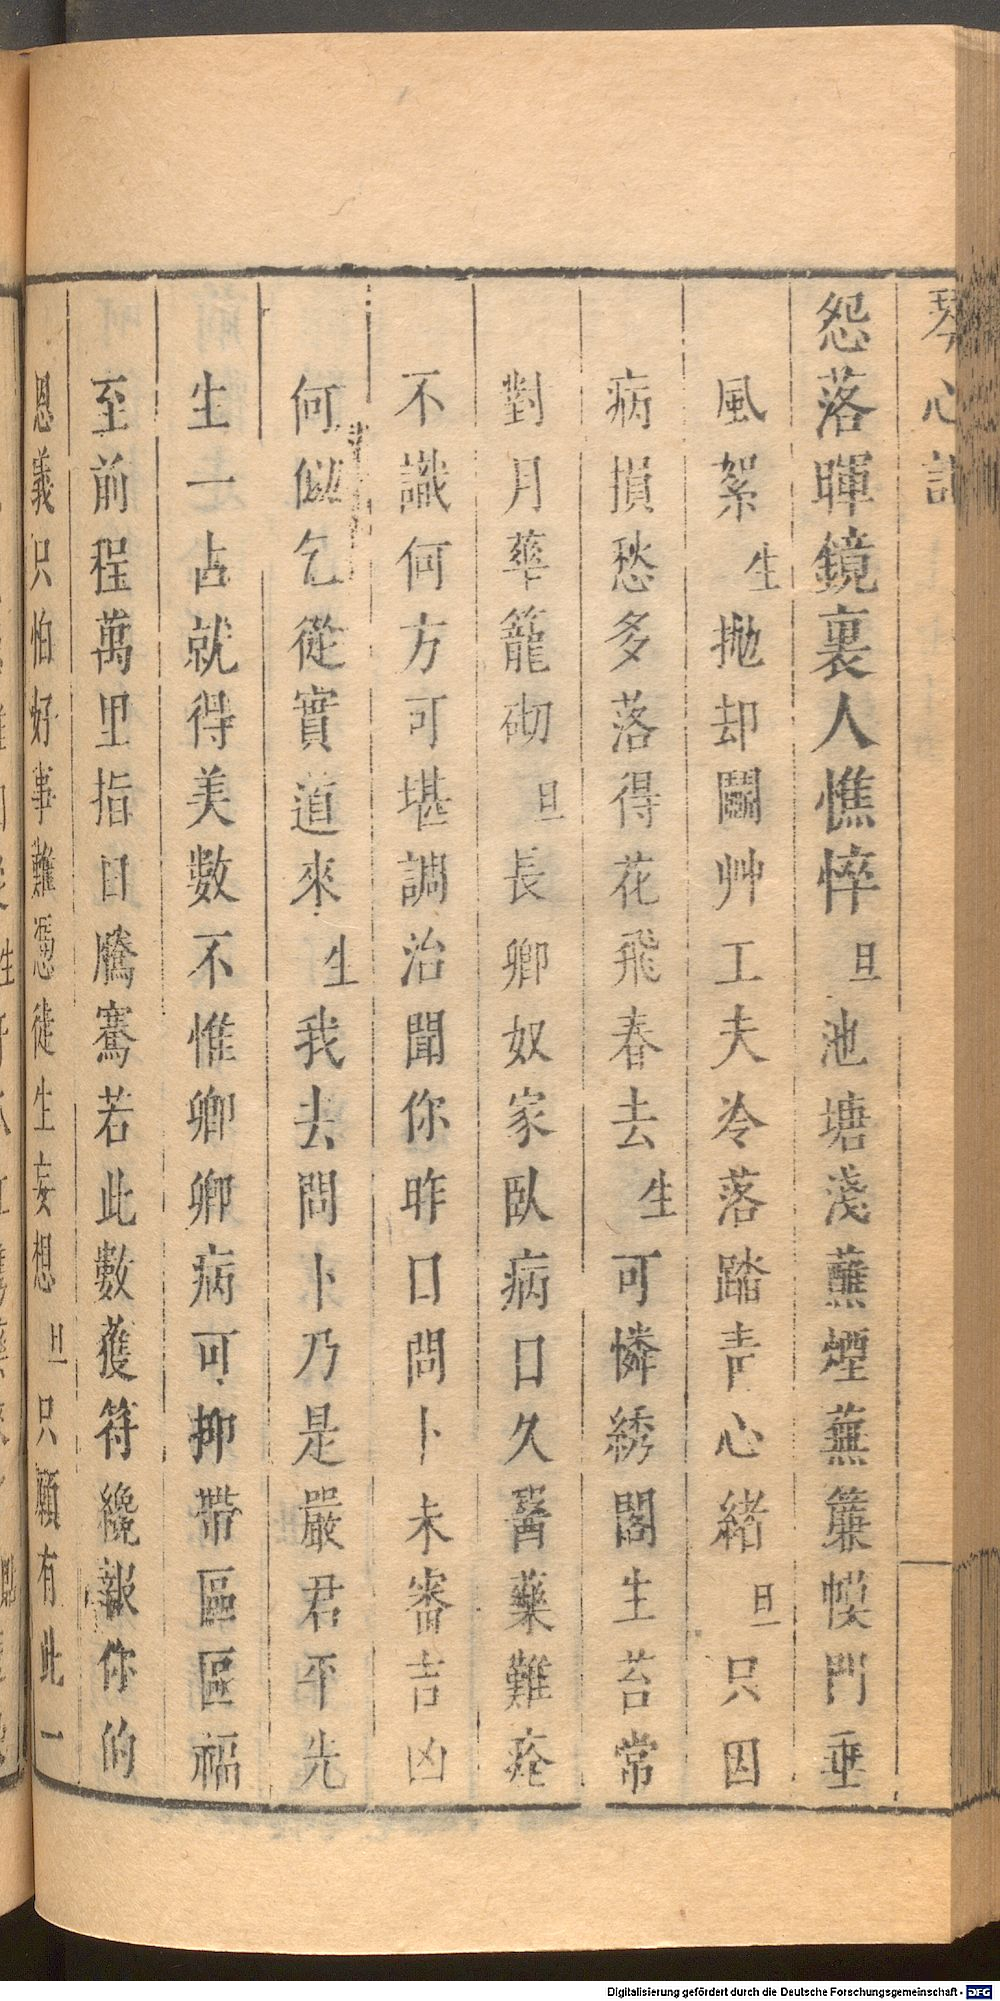 琴心記
怨落暉鏡裏人憔悴旦池塘淺蘸煙蕪簾幙門垂
風絮生拋却鬭艸工夫冷落踏青心緒旦只因
病損愁多落得花飛春去生可憐綉閣生苔常
對月華籠砌旦長卿奴家臥病日久醫藥難痊
不識何方可堪調治聞你昨日問卜未審吉凶
何似乞從實道來生我去問卜乃是嚴君平先
生一占就得美數不惟卿卿病可抑帶區區福
至前程萬里指日騰騫若此數獲符纔報你的
恩義只怕好事難憑徒生妄想旦只願有此一
Digitalisierung gefördert durch die Deutsche Forschungsgemeinschaft - DFG